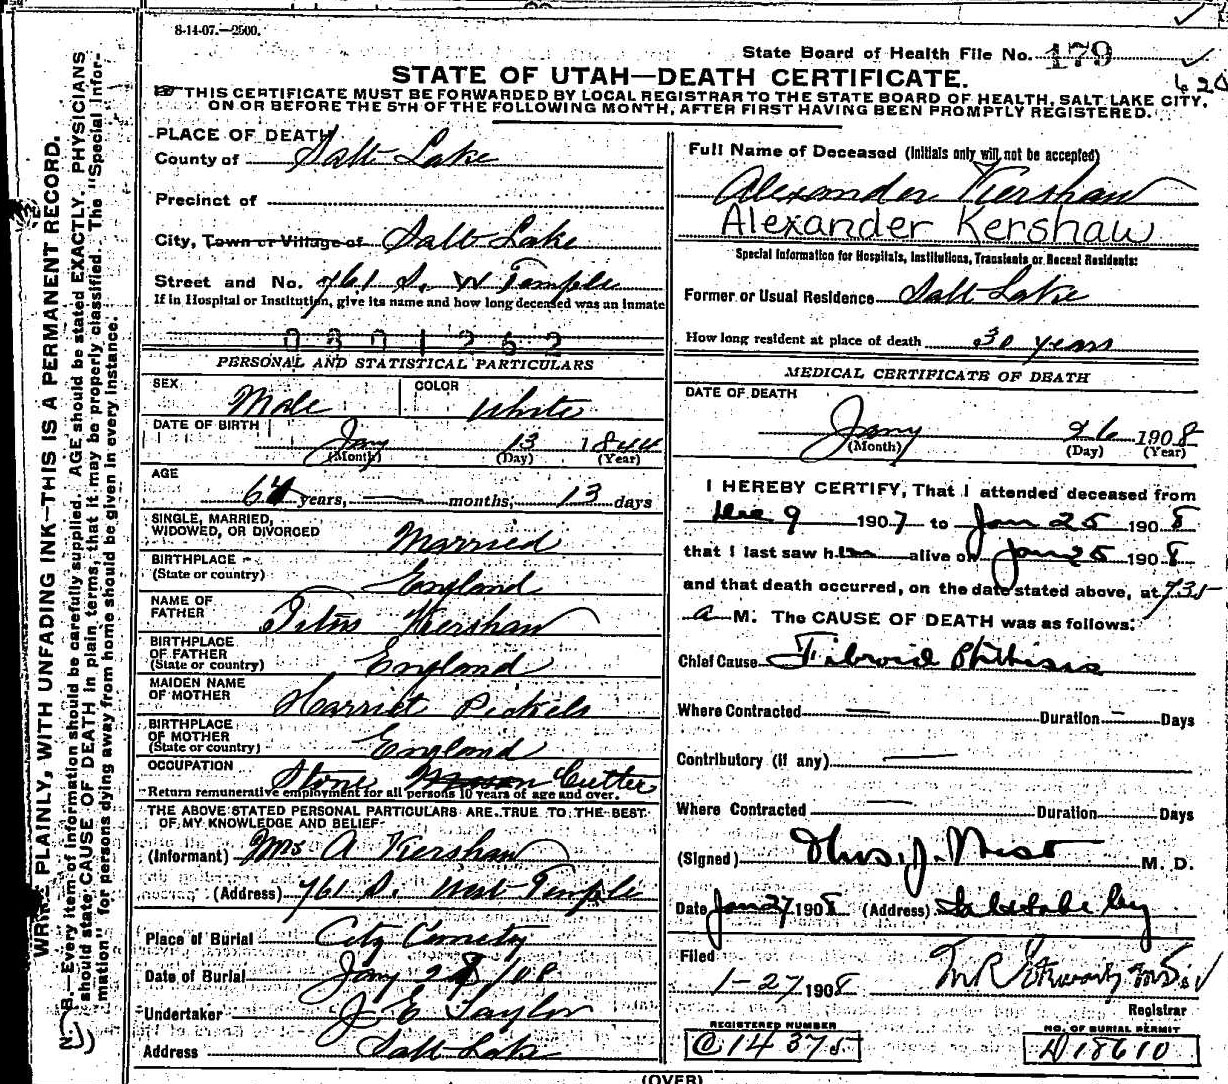 8-14-07.—2500.
State Board of Health File No. 179
STATE OF UTAH—DEATH CERTIFICATE.
THIS CERTIFICATE MUST BE FORWARDED BY LOCAL REGISTRAR TO THE STATE BOARD OF HEALTH, SALT LAKE CITY,
ON OR BEFORE THE 5TH OF THE FOLLOWING MONTH, AFTER FIRST HAVING BEEN PROMPTLY REGISTERED.
WRITE PLAINLY, WITH UNFADING INK—THIS IS A PERMANENT RECORD.
N. B.—Every item of information should be carefully supplied. AGE should be stated EXACTLY. PHYSICIANS
should state CAUSE OF DEATH in plain terms, that it may be properly classified. The "Special Infor-
mation" for persons dying away from home should be given in every instance.
PLACE OF DEATH
County of Salt Lake
Precinct of
City, Town or Village of Salt Lake
Street and No. 761 S. W Temple
If in Hospital or Institution, give its name and how long deceased was an inmate
0301262
PERSONAL AND STATISTICAL PARTICULARS
SEX Male COLOR White
DATE OF BIRTH Jany 13 1844
(Month) (Day) (Year)
AGE
64 years, — months, 13 days
SINGLE, MARRIED,
WIDOWED, OR DIVORCED Married
BIRTHPLACE
(State or country) England
NAME OF
FATHER Titus Kershaw
BIRTHPLACE
OF FATHER
(State or country) England
MAIDEN NAME
OF MOTHER Harriet Pickels
BIRTHPLACE
OF MOTHER
(State or country) England
OCCUPATION Stone Mason Cutter
Return remunerative employment for all persons 10 years of age and over.
THE ABOVE STATED PERSONAL PARTICULARS ARE TRUE TO THE BEST
OF MY KNOWLEDGE AND BELIEF
(Informant) Mrs A Kershaw
(Address) 761 S. West Temple
Place of Burial City Cemetry
Date of Burial Jany 28/08
Undertaker J E Taylor
Address Salt Lake
Full Name of Deceased (Initials only will not be accepted)
Alexander Kershaw
Alexander Kershaw
Special Information for Hospitals, Institutions, Transients or Recent Residents:
Former or Usual Residence Salt Lake
How long resident at place of death 30 years
MEDICAL CERTIFICATE OF DEATH
DATE OF DEATH
Jany 26 1908
(Month) (Day) (Year)
I HEREBY CERTIFY, That I attended deceased from
Dec 9 1907 to Jan 25 1908
that I last saw him alive on Jan 25 1908
and that death occurred, on the date stated above, at 735
a M. The CAUSE OF DEATH was as follows:
Chief Cause Fibroid Phthisis
Where Contracted — Duration — Days
Contributory (if any) —
Where Contracted — Duration Days
(Signed) M. D.
Date Jan 27 1908 (Address) Salt Lake City
Filed
1-27 1908
Registrar
REGISTERED NUMBER
C 14375
NO. OF BURIAL PERMIT
D18610
(OVER)